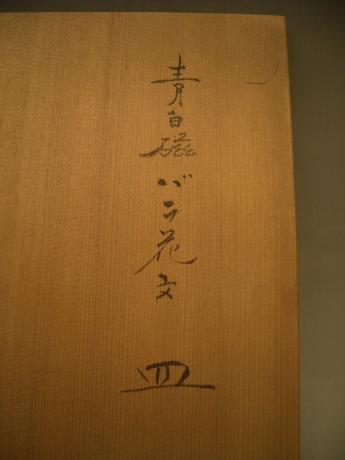 青白磁バラ花文 皿